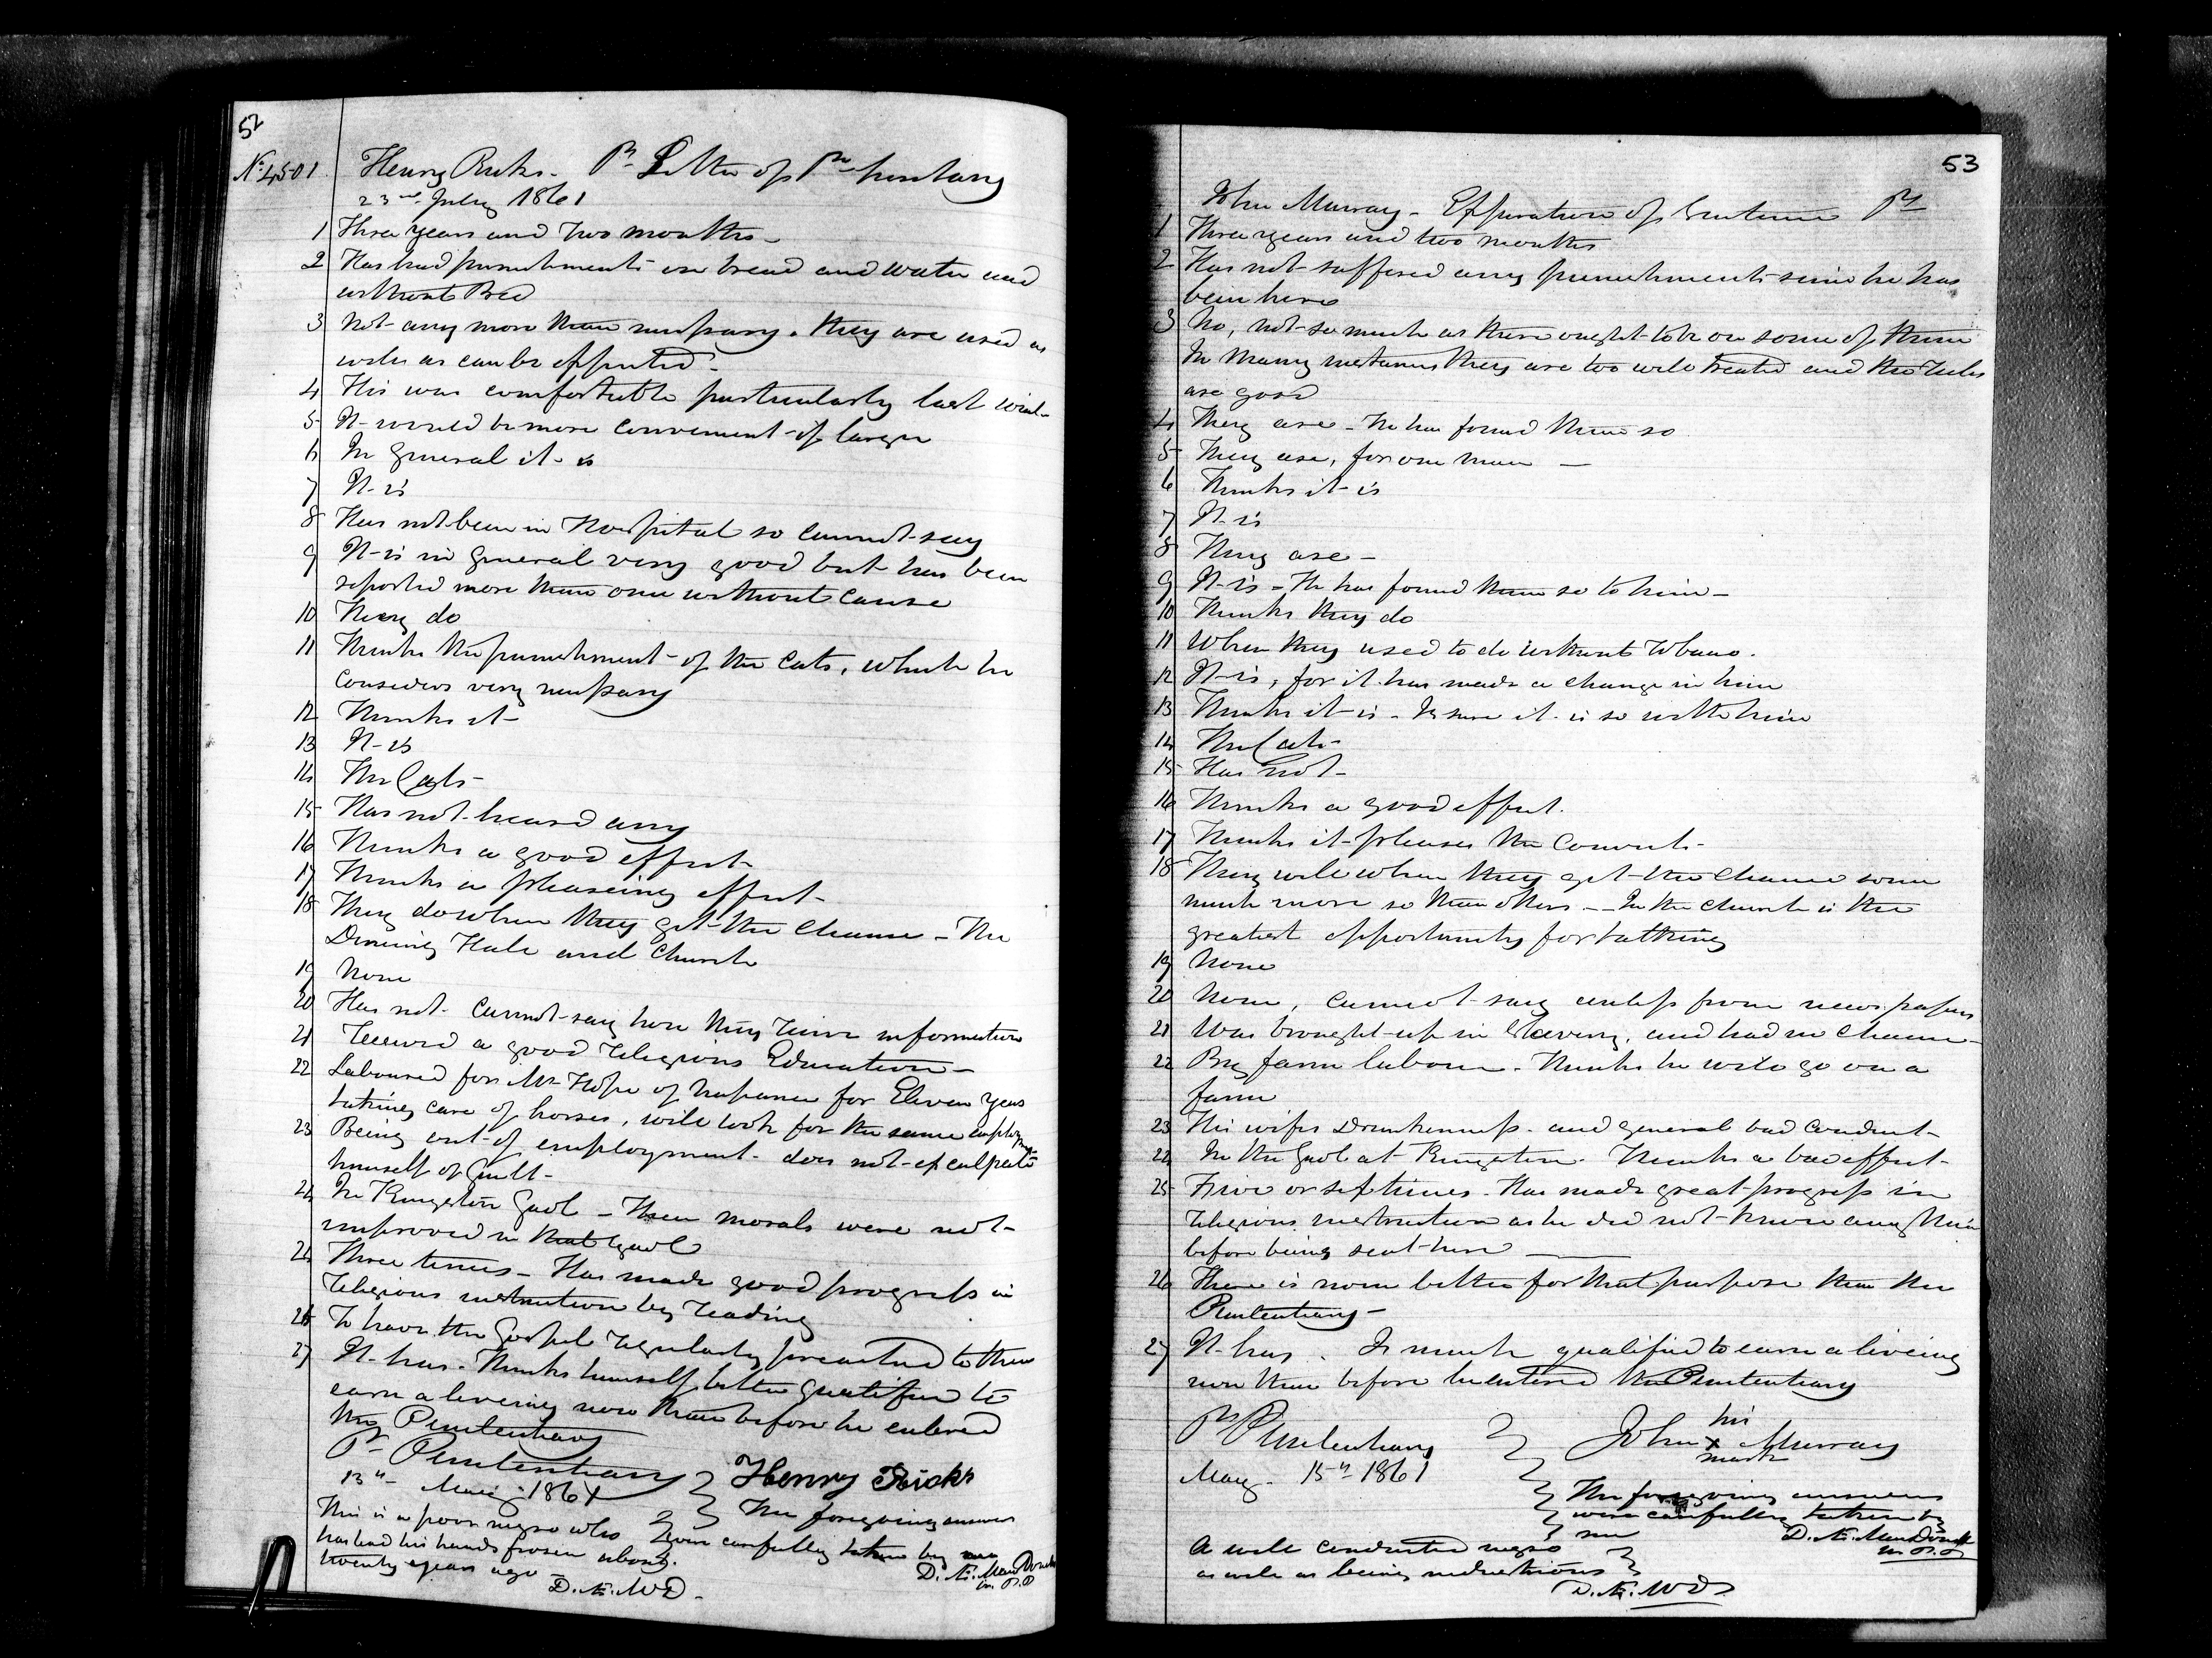 52
No. 4501
Henry Ricks. Pr Letter of Penitentiary
23rd July 1861
1 Three years and Two months -
2 Has had punishments on bread and water and
without Bed
3 Not any more than necessary. they are used as
well as can be expected.
4 His was comfortable particularly last wint-
5 It would be more convenient if larger
6 In general it is
7 It is
8 Has not been in Hospital so cannot say
9 It is in general very good but has been
reported more than once without Cause
10 They do
11 Thinks the punishment of the Cats, which he
Considers very necessary
12 Thinks it
13 It is
14 The Cats -
15 Has not heard any
16 Thinks a good effect
17 Thinks a pleaseing effect -
18 They do when they get the Chance - The
Dineing Hall and Church
19 None
20 Has not. Cannot say how they receive information
21 Received a good religious Education -
22 Laboured for Mr Hope of Napanee for Eleven years
takeing care of horses, will look for the same employment
23 Being out of employment - does not exculpate
himself of Guilt -
24 In Kingston Gaol - Their morals were not
improved in that Gaol
24 Three times - Has made good progress in
religious instruction by reading
26 To have the Gospel regularly preached to them
27 It has. Thinks himself better qualified to
earn a liveing now than before he entered
the Penitentiary
Pr Penitentiary
13th May 1861
Henry Ricks
The foregoing answers
were carefully taken by me
D. Æ. MacDonell
This is a poor negro who
has had his hands frozen about
twenty years ago -
D. Æ. McD.
53
John Murray - Expiration of Sentence Pr
1 Three years and two months
2 Has not suffered any punishments since he has
been here
3 No, not so much as there ought to be on some of them
In many instances they are too well treated and the rules
are good
4 They are - He has found them so
5 They are, for one man -
6 Thinks it is
7 It is
8 They are -
9 It is - He has found them so to him -
10 Thinks they do
11 When they used to do without Tobacco.
12 It is, for it has made a change in him
13 Thinks it is - Is sure it is so with him
14 The Cats -
15 Has not -
16 Thinks a good effect.
17 Thinks it pleases the Convicts -
18 They will when they get the Chance some
much more so than others - In the Church is the
greatest opportunity for talking
19 None
20 None, cannot say unless from newspapers
21 Was brought up in Slavery, and had no Chance -
22 By farm labour. Thinks he will go on a
farm
23 His wifes Drunkenness - and general bad Conduct -
24 In the Gaol at Kingston. Thinks a bad effect -
25 Five or six times. Has made great progress in
religious instruction as he did not know any thing
before being sent here
26 There is none better for that purpose than the
Penitentiary -
27 It has. Is much qualified to earn a liveing
now than before he entered the Penitentiary
Pr Penitentiary
May 15th 1861
his
John X Murray
mark
The foregoing answers
were carefully taken by
me
D. Æ. MacDonell
A well conducted negro
as well as being industrious
D. Æ. McD.